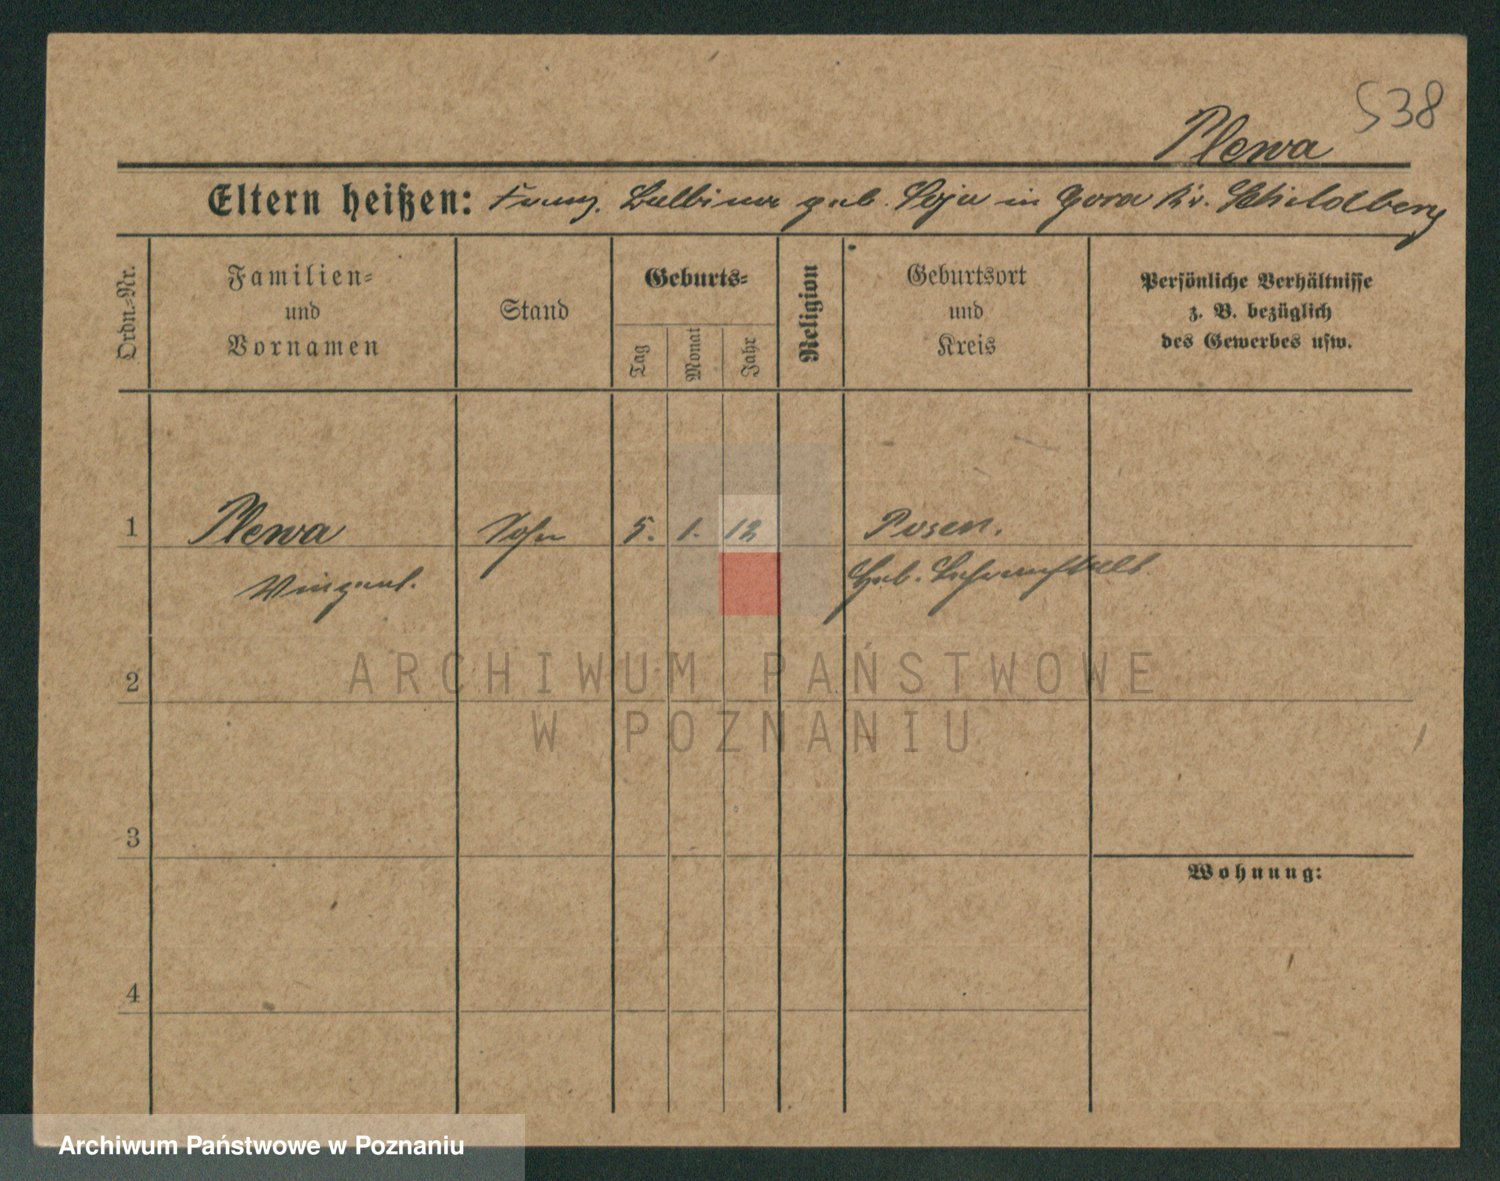 538
Plewa
Eltern heißen: Franz. Balbina geb. Soja in Gora Kr. Schildberg
Ordn.-Nr.
Familien-
und
Vornamen
Stand
Geburts-
Tag
Monat
Jahr
Religion
Geburtsort
und
Kreis
Persönliche Verhältnisse
z. B. bezüglich
des Gewerbes usw.
1
Plewa
Sohn
5.
1.
12
Posen.
Vinzent.
Heb. Lehranstalt
ARCHIWUM PAŃSTWOWE
2
W POZNANIU
3
Wohnung:
4
Archiwum Państwowe w Poznaniu